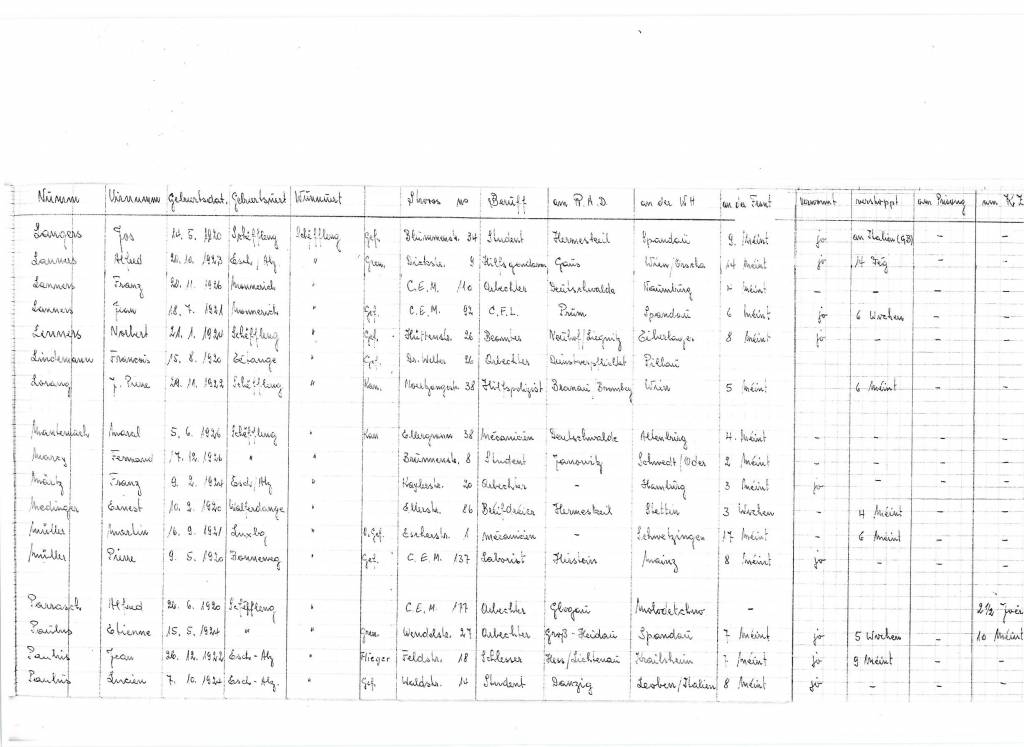 Numm Virnumm Geburtsdat. Geburtsuert Wunnuert Strooss no Beruff am R.A.D. an der WH an der Front verwonnt verstoppt am Prisong am KZ
Langers Jos 14. 5. 1920 Schëffleng Schëffleng Gef. Blummenstr. 34 Student Hermeskeil Spandau 9. Méint jo an Italien (GB) - -
Lanners Alfred 20. 10. 1923 Esch/Alz " Gren. Dickstr. 9 Hilfsgendarm Wien/ 14 Méint jo 14 Deg - -
Lanners Franz 20. 11. 1926 Monnerich " C.E.M. 110 Arbechter Deutschwalde Naumburg Méint - - - -
Lanners Jean 18. 7. 1921 Monnerich " Gef. C.E.M. 92 C.F.L. Prüm Spandau 6 Méint jo 6 Wochen - -
Lenners Norbert 21. 1. 1924 Schëffleng " Gef. Hüttenstr. 26 Beamter Neuhof/Liegnitz 8 Méint jo - - -
Lindemann Francois 15. 8. 1920 " Gef. Dr. Welter 26 Arbechter Deinstverpflichtet Pillau
Lorang J. Pierre 1922 Schëffleng " Kan. 38 Hilfspolizist Bromberg 5 Méint 6 Méint - -
Marcel 5. 6. 1926 Schëffleng " Kan Ellergronn 38 Mécanicien Deutschwalde Altenburg 4. Méint - - - -
Marzy Fernand 17. 12. 1926 " " Brunnenstr. 8 Student Janowitz Schwedt/Oder 2 Méint - - - -
Franz 9. 2. 1924 Esch/Alz " 20 Arbechter - Hamburg 3 Méint jo - - -
Medinger Ernest 10. 2. 1920 Walferdange " Ellerstr. 26 Hermeskeil Stettin 3 Wochen - 4 Méint - -
Müller Martin 16. 9. 1921 Luxbg " O.Gef. Escherstr. 1 Mécanicien - Schwetzingen 17 Méint - 6 Méint - -
Müller Pierre 9. 5. 1920 Bonneweg " Gef. C.E.M. 137 Laborist Mainz 8 Méint jo - - -
Parrasch Alfred 26. 6. 1920 Schëffleng " C.E.M. 177 Arbechter Glogau Molodetchno - 2 1/2
Paulus Etienne 15. 5. 1924 " " Gren. Wendelstr. 27 Arbechter Groß-Heidau Spandau 7 Méint jo 5 Wochen - 10 Méint
Paulus Jean 26. 12. 1922 Esch-Alz " Flieger Feldstr. 18 Schlesser Hess/Lichtenau Krailsheim 7 Méint jo 9 Méint - -
Paulus Lucien 7. 10. 1924 Esch-Alz. " Gef. Waldstr. 14 Student Danzig Leoben/Italien 8 Méint jo - - -